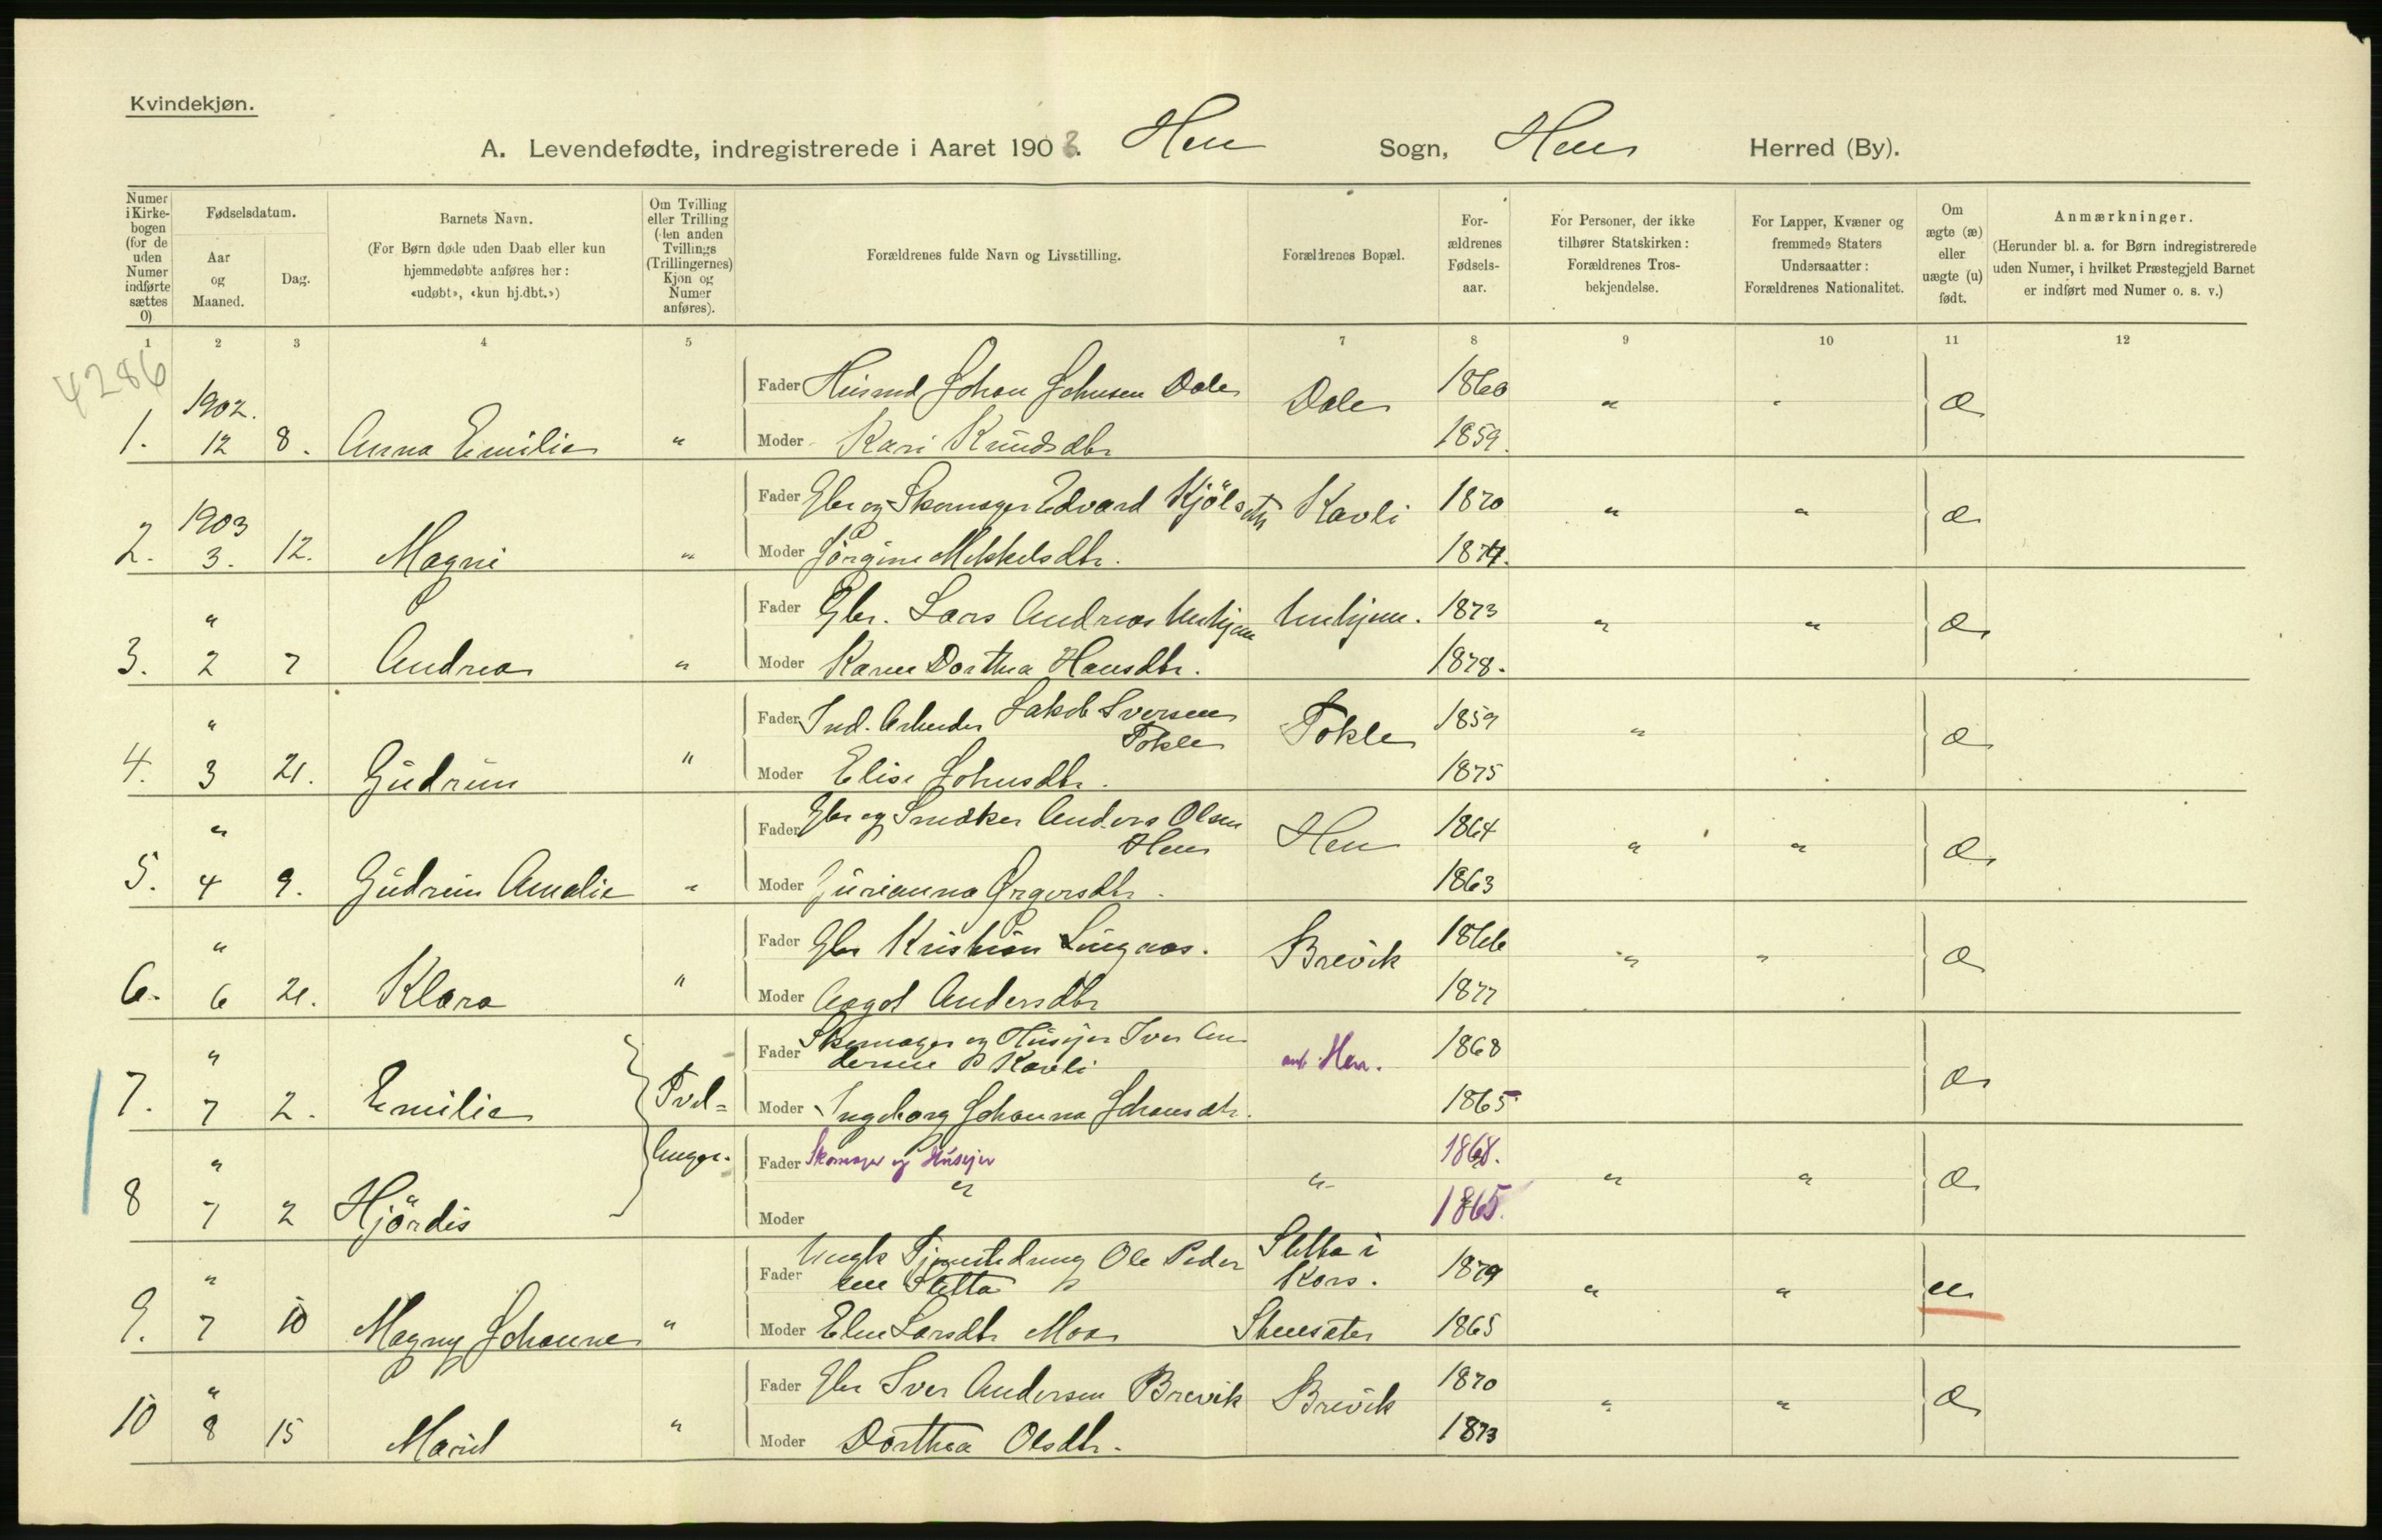 Kvindekjøn.
A. Levendefødte, indregistrerede i Aaret 1903. Hen Sogn, Hen Herred (By).
Numer i Kirkebogen (for de uden Numer indførte sættes 0)
Fødselsdatum.
Aar og Maaned.
Dag.
Barnets Navn.
(For Børn døde uden Daab eller kun hjemmedøbte anføres her: «udøbt», «kun hj.dbt.»)
Om Tvilling eller Trilling (den anden Tvillings (Trillingernes) Kjøn og Numer anføres).
Forældrenes fulde Navn og Livsstilling.
Forældrenes Bopæl.
Forældrenes Fødselsaar.
For Personer, der ikke tilhører Statskirken: Forældrenes Trosbekjendelse.
For Lapper, Kvæner og fremmede Staters Undersaatter: Forældrenes Nationalitet.
Om ægte (æ) eller uægte (u) født.
Anmærkninger.
(Herunder bl. a. for Børn indregistrerede uden Numer, i hvilket Præstegjeld Barnet er indført med Numer o. s. v.)
1 2 3 4 5 7 8 9 10 11 12
4286
1902.
Fader Husmd Johan Johnsen Dale Dale 1860 " " æ
1. 12 8. Anna Emilie " Moder Kari Knudsdtr 1859.
1903
Fader Gbr og Skomager Edvard Kjölseth Kavli 1870 " " æ
2. 3. 12. Magni " Moder Jörgine Mikkelsdtr. 1874.
" Fader Gbr. Lars Andreas Unhjem Unhjem. 1873 " " æ
3. 2 7 Andrea " Moder Karen Dorthea Hansdtr. 1878.
" Fader Ind. Arbeider Jakob Iversen Tokle Tokle 1859 " æ
4. 3 21. Gudrun " Moder Elise Johnsdtr. 1875
" Fader Gbr og Snedker Anders Olsen Hen Hen 1864 " " æ
5. 4 9. Gudrun Amalie " Moder Gurianna 1863
" Fader Gbr Kristian Brevik 1866 " " æ
6. 6 21. Klara " Moder Aagot Andersdtr 1877
" Fader Skomager og Husejer Iver Andersen Kavli Hen. 1868 æ
7. 7 2. Emilie Tvil= Moder Ingeborg Johanna Johansdtr. 1865
" linger. Fader Skomager og Husejer " " 1868. " " æ
8 7 2 Hjördis Moder 1865.
" Fader Ungk Ole Pedersen Sletta Sletta i Kors. 1879 " " u
9. 7 10 Magny Johanna " Moder Elen Larsdtr Moa Stensæter 1865
" Fader Gbr Iver Andersen Brevik Brevik 1870 " " æ
10 8 15 Marit " Moder Dorthea Olsdtr. 1873